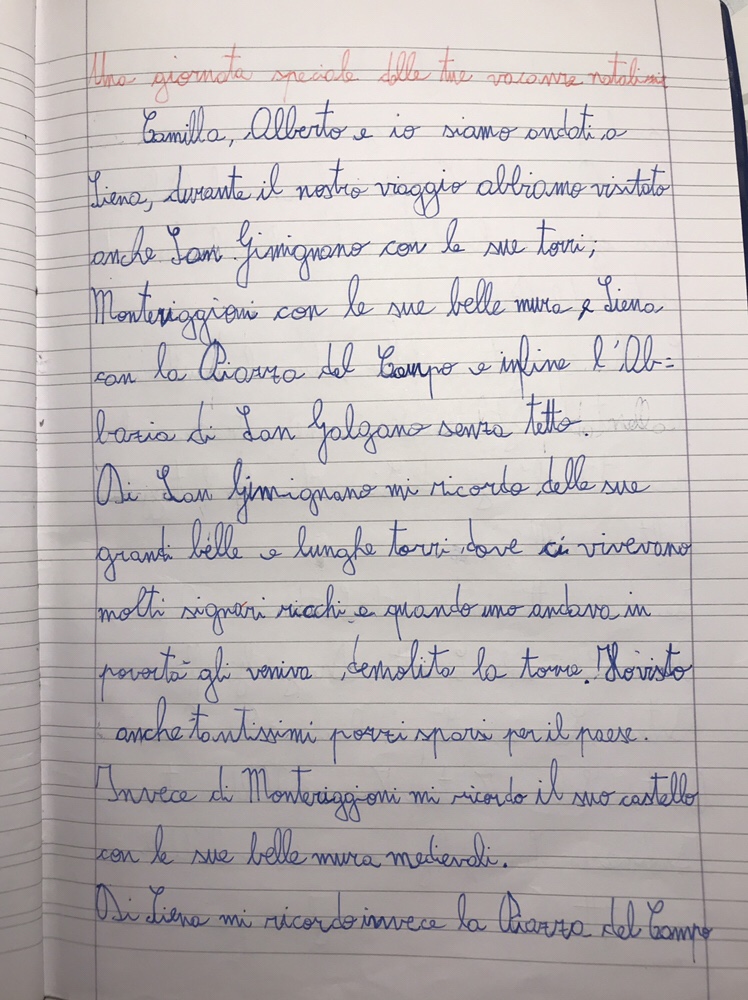 Una giornata speciale delle tue vacanze natalizie
Camilla, Alberto e io siamo andati a
Siena, durante il nostro viaggio abbiamo visitato
anche San Gimignano con le sue torri;
Monteriggioni con le sue belle mura e Siena
con la Piazza del Campo e infine l'Ab=
bazia di San Galgano senza tetto.
Di San Gimignano mi ricordo delle sue
grandi belle e lunghe torri dove ci vivevano
molti signori ricchi e quando uno andava in
povertà gli veniva demolita la torre. Ho visto
anche tantissimi pozzi sparsi per il paese.
Invece di Monteriggioni mi ricordo il suo castello
con le sue belle mura medievali.
Di Siena mi ricordo invece la Piazza del Campo